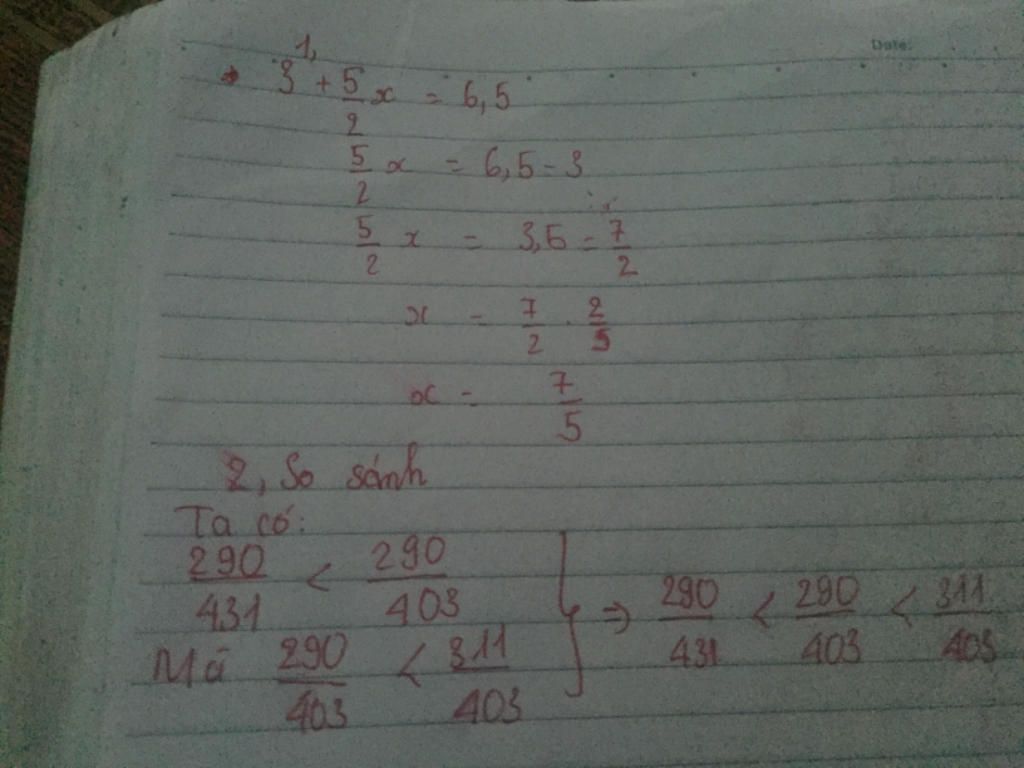 Date:
1,
3 + 5/2 x = 6,5
5/2 x = 6,5 - 3
5/2 x = 3,5 = 7/2
x = 7/2 . 2/5
x = 7/5
2, So sánh
Ta có:
290/431 < 290/403
Mà 290/403 < 311/403
⇒ 290/431 < 290/403 < 311/403